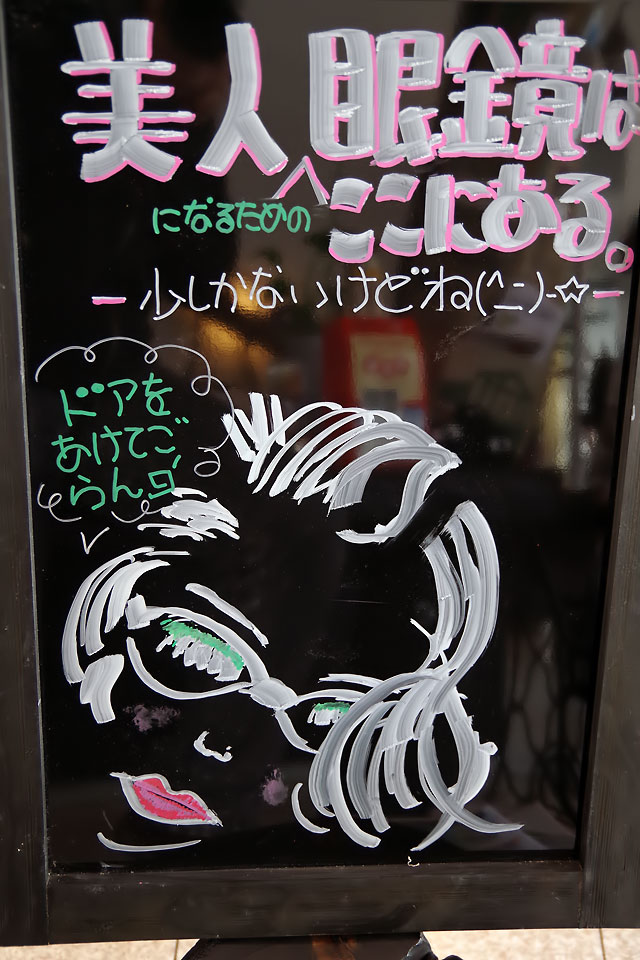 美人眼鏡は
になるための
ここにある。
－少しかないけどね(^ニ)-☆－
ドアを
あけてご
らんヨ